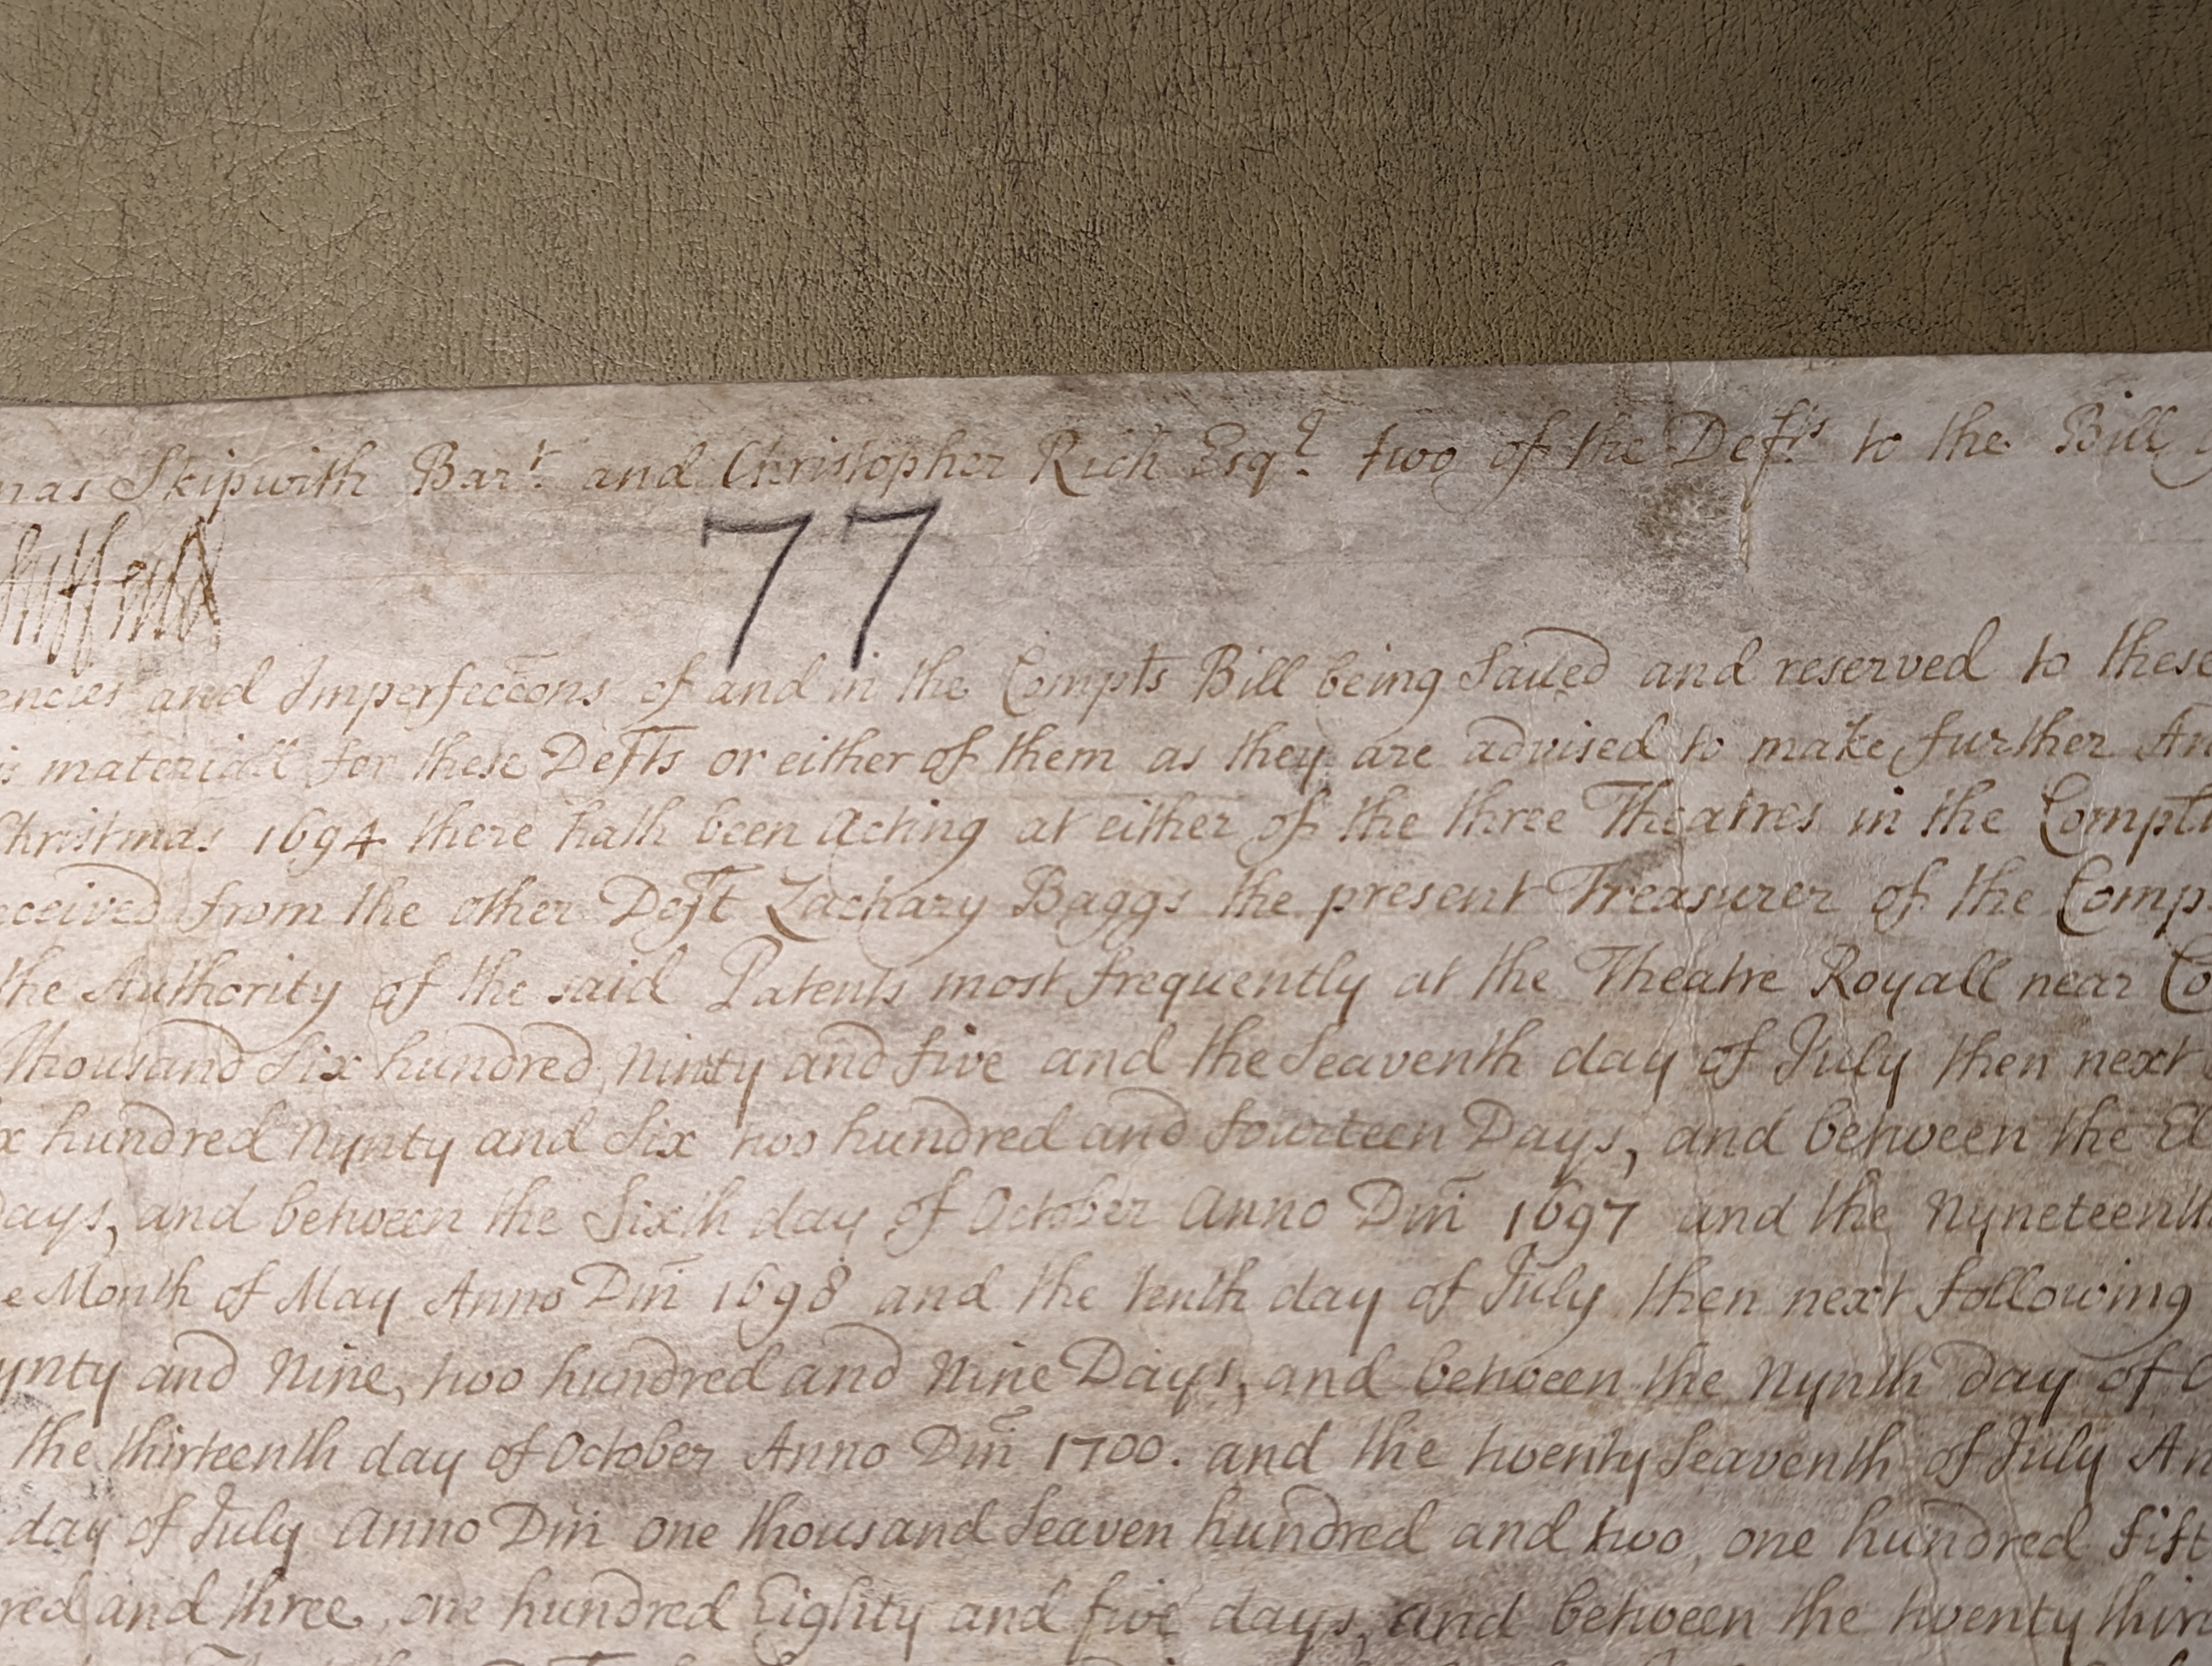 mas Skipwith Bart. and Christopher Rich Esqr. two of the Defts. to the Bill
77
encies and Imperfeccõns of and in the Compts Bill being saued and reserved to these
is materiall for these Defts or either of them as they are advised to make further An
Christmas 1694 there hath been Acting at either of the three Theatres in the Complts
eceived from the other Deft Zachary Baggs the present Treasurer of the Comp
the Authority of the said Patents most frequently at the Theatre Royall near Co
Thousand Six hundred Ninty and five and the Seaventh day of July then next
x hundred Nynty and Six two hundred and fourteen Days, and between the El
Days, and between the Sixth day of October Anno Dm̃i 1697 and the Nyneteenth
e Month of May Anno Dm̃i 1698 and the tenth day of July then next following
ynty and Nine, two hundred and Nine Days, and between the Nynth day of O
the thirteenth day of October Anno Dm̃i 1700. and the twenty Seaventh of July An
day of July Anno Dm̃i one thousand Seaven hundred and two, one hundred fift
red and three, one hundred Eighty and five days, and between the twenty thir